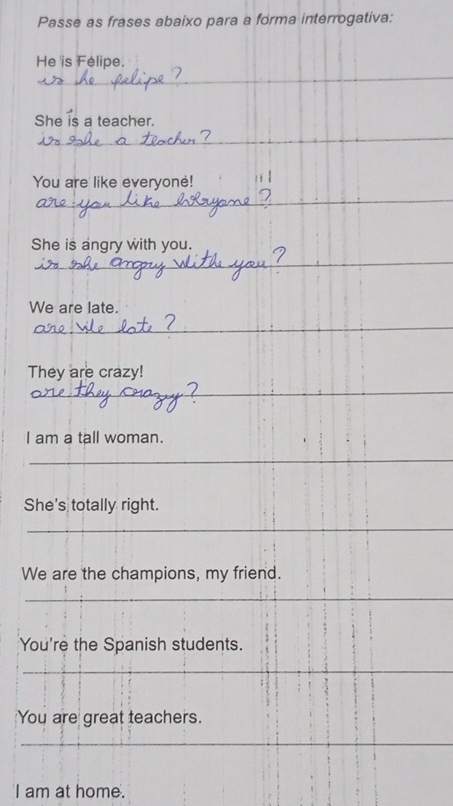 Passe as frases abaixo para a forma interrogativa:
He is Felipe.
is he felipe?
She is a teacher.
is she a teacher?
You are like everyone!
are you like everyone?
She is angry with you.
is she angry withe you?
We are late.
are we late?
They are crazy!
are they crazy?
I am a tall woman.
She's totally right.
We are the champions, my friend.
You're the Spanish students.
You are great teachers.
I am at home.